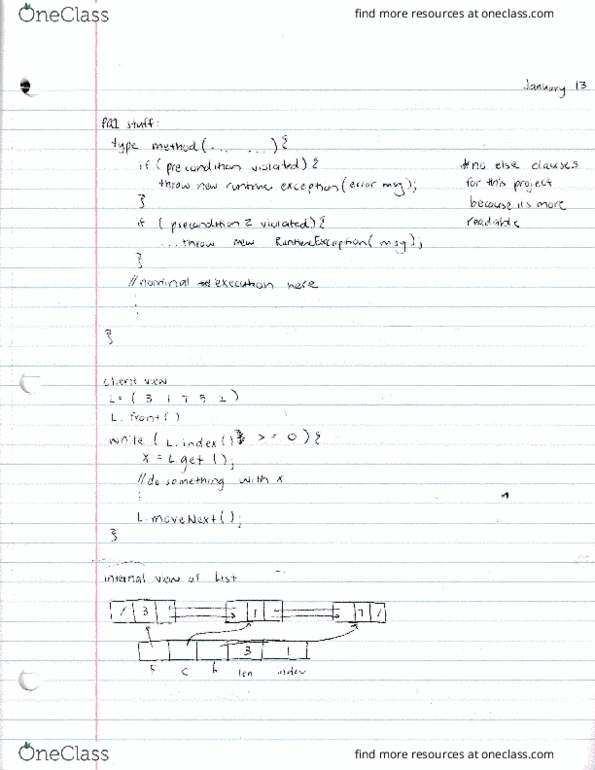 OneClass
find more resources at oneclass.com
January 13
pa1 stuff:
type method(... ...) {
if (precondition violated) {
throw new runtime exception(error msg);
}
if (precondition 2 violated) {
...throw new RuntimeException(msg);
}
//nominal execution here
:
}
#no else clauses
for this project
because its more
readable
client view
L = ( 3 1 7 5 2 )
L.front()
while ( L.index() >= 0 ) {
x = L.get();
//do something with x
:
L.moveNext();
}
internal view of List
/ 3
1
7 /
3 1
f c b len index
OneClass
find more resources at oneclass.com